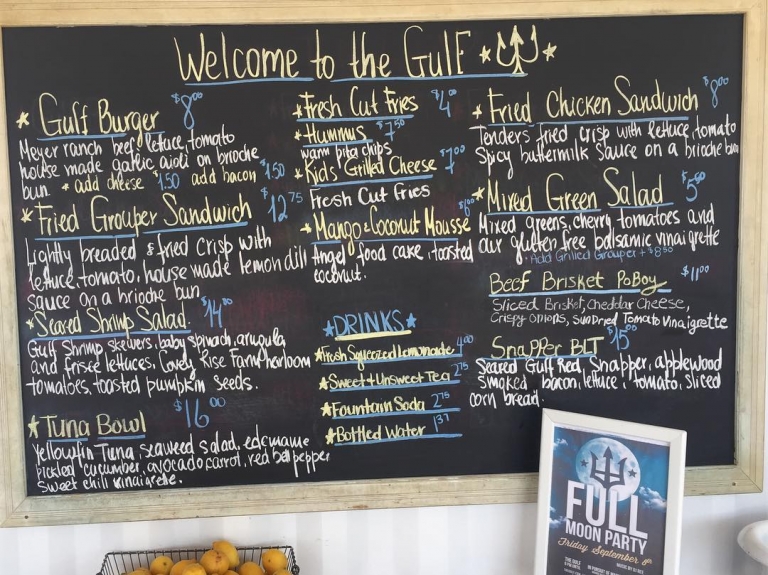 Welcome to the Gulf
Gulf Burger $8.00
Meyer ranch beef, lettuce, tomato
house made garlic aioli on brioche
bun. * add cheese $1.50 add bacon $1.50
Fried Grouper Sandwich $12.75
Lightly breaded & fried crisp with
lettuce, tomato, house made lemon dill
sauce on a brioche bun
Seared Shrimp Salad $14.00
Gulf Shrimp skewers, baby spinach, arugula
and frisee lettuces, Rise Farm heirloom
tomatoes, toasted pumpkin seeds.
Tuna Bowl $16.00
Yellowfin Tuna, seaweed salad, edamame
pickled cucumber, avocado carrot, red bell pepper
sweet chili vinaigrette.
Fresh Cut Fries $4.00
Hummus $7.50
warm pita chips
Kids Grilled Cheese $7.00
Fresh Cut Fries
Mango-Coconut Mousse
Angel food cake, toasted
coconut.
DRINKS
Fresh Squeezed Lemonade 4.00
Sweet & Unsweet Tea 2.75
Fountain Soda 2.75
Bottled Water
Fried Chicken Sandwich $8.00
Tenders fried crisp with lettuce, tomato
Spicy buttermilk Sauce on a brioche bun
Mixed Green Salad
Mixed greens, cherry tomatoes and
our gluten free balsamic vinaigrette
- Add Grilled Grouper +
Beef Brisket PoBoy $11.00
Sliced Brisket, Cheddar Cheese,
Crispy Onions, Sundried Tomato Vinaigrette
Snapper BLT $15.00
Seared Gulf Red Snapper, applewood
smoked bacon, lettuce, tomato, sliced
corn bread.
FULL
MOON PARTY
Friday September 8th
THE GULF